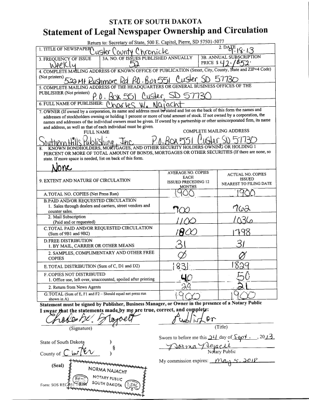 STATE OF SOUTH DAKOTA
Statement of Legal Newspaper Ownership and Circulation
Return to: Secretary of State, 500 E. Capitol, Pierre, SD 57501-5077
1. TITLE OF NEWSPAPER Custer County Chronicle
2. DATE 9-18-13
3. FREQUENCY OF ISSUE Weekly
3A. NO. OF ISSUES PUBLISHED ANNUALLY 52
3B. ANNUAL SUBSCRIPTION PRICE
4. COMPLETE MAILING ADDRESS OF KNOWN OFFICE OF PUBLICATION (Street, City, County, State and ZIP+4 Code)
(Not printers) Rushmore Rd PO Box 551 Custer SD 57730
5. COMPLETE MAILING ADDRESS OF THE HEADQUARTERS OR GENERAL BUSINESS OFFICES OF THE
PUBLISHER (Not printer) P.O. Box 551 Custer, SD 57730
6. FULL NAME OF PUBLISHER: Charles W. Najacht
7. OWNER (If owned by a corporation, its name and address must be stated and list on the back of this form the names and
addresses of stockholders owning or holding 1 percent or more of total amount of stock. If not owned by a corporation, the
names and addresses of the individual owners must be given. If owned by a partnership or other unincorporated firm, its name
and address, as well as that of each individual must be given.
FULL NAME COMPLETE MAILING ADDRESS
Southern Hills Publishing, Inc. P.O. Box 551 Custer SD 57730
8. KNOWN BONDHOLDERS, MORTGAGES, AND OTHER SECURITY HOLDERS OWNING OR HOLDING 1
PERCENT OR MORE OF TOTAL AMOUNT OF BONDS, MORTGAGES OR OTHER SECURITIES (If there are none, so
state. If more space is needed, list on back of this form.
None
9. EXTENT AND NATURE OF CIRCULATION
AVERAGE NO. COPIES EACH ISSUED PRECEDING 12 MONTHS
ACTUAL NO. COPIES ISSUED NEAREST TO FILING DATE
A. TOTAL NO. COPIES (Net Press Run) 1900 1900
B. PAID AND/OR REQUESTED CIRCULATION
1. Sales through dealers and carriers, street vendors and
counter sales 700 762
2. Mail Subscription
(Paid and/or requested) 1100 1036
C. TOTAL PAID AND/OR REQUESTED CIRCULATION
(Sum of 9B1 and 9B2) 1800 1798
D. FREE DISTRIBUTION
1. BY MAIL, CARRIER OR OTHER MEANS 31 31
2. SAMPLES, COMPLIMENTARY AND OTHER FREE
COPIES Ø Ø
E. TOTAL DISTRIBUTION (Sum of C, D1 and D2) 1831 1829
F. COPIES NOT DISTRIBUTED
1. Office use, left over, unaccounted, spoiled after printing 40 50
2. Return from News Agents 29 21
G. TOTAL (Sum of E, F1 and F2 - Should equal net press run
shown in A) 1900 1900
Statement must be signed by Publisher, Business Manager, or Owner in the presence of a Notary Public
I swear that the statements made by me are true, correct, and complete:
Charles W. Najacht Publisher
(Signature) (Title)
State of South Dakota )
County of Custer )
Sworn to before me this 24 day of Sept, 2013
Norma Najacht
Notary Public
My commission expires:
(Seal)
NORMA NAJACHT
NOTARY PUBLIC
SOUTH DAKOTA
SEAL